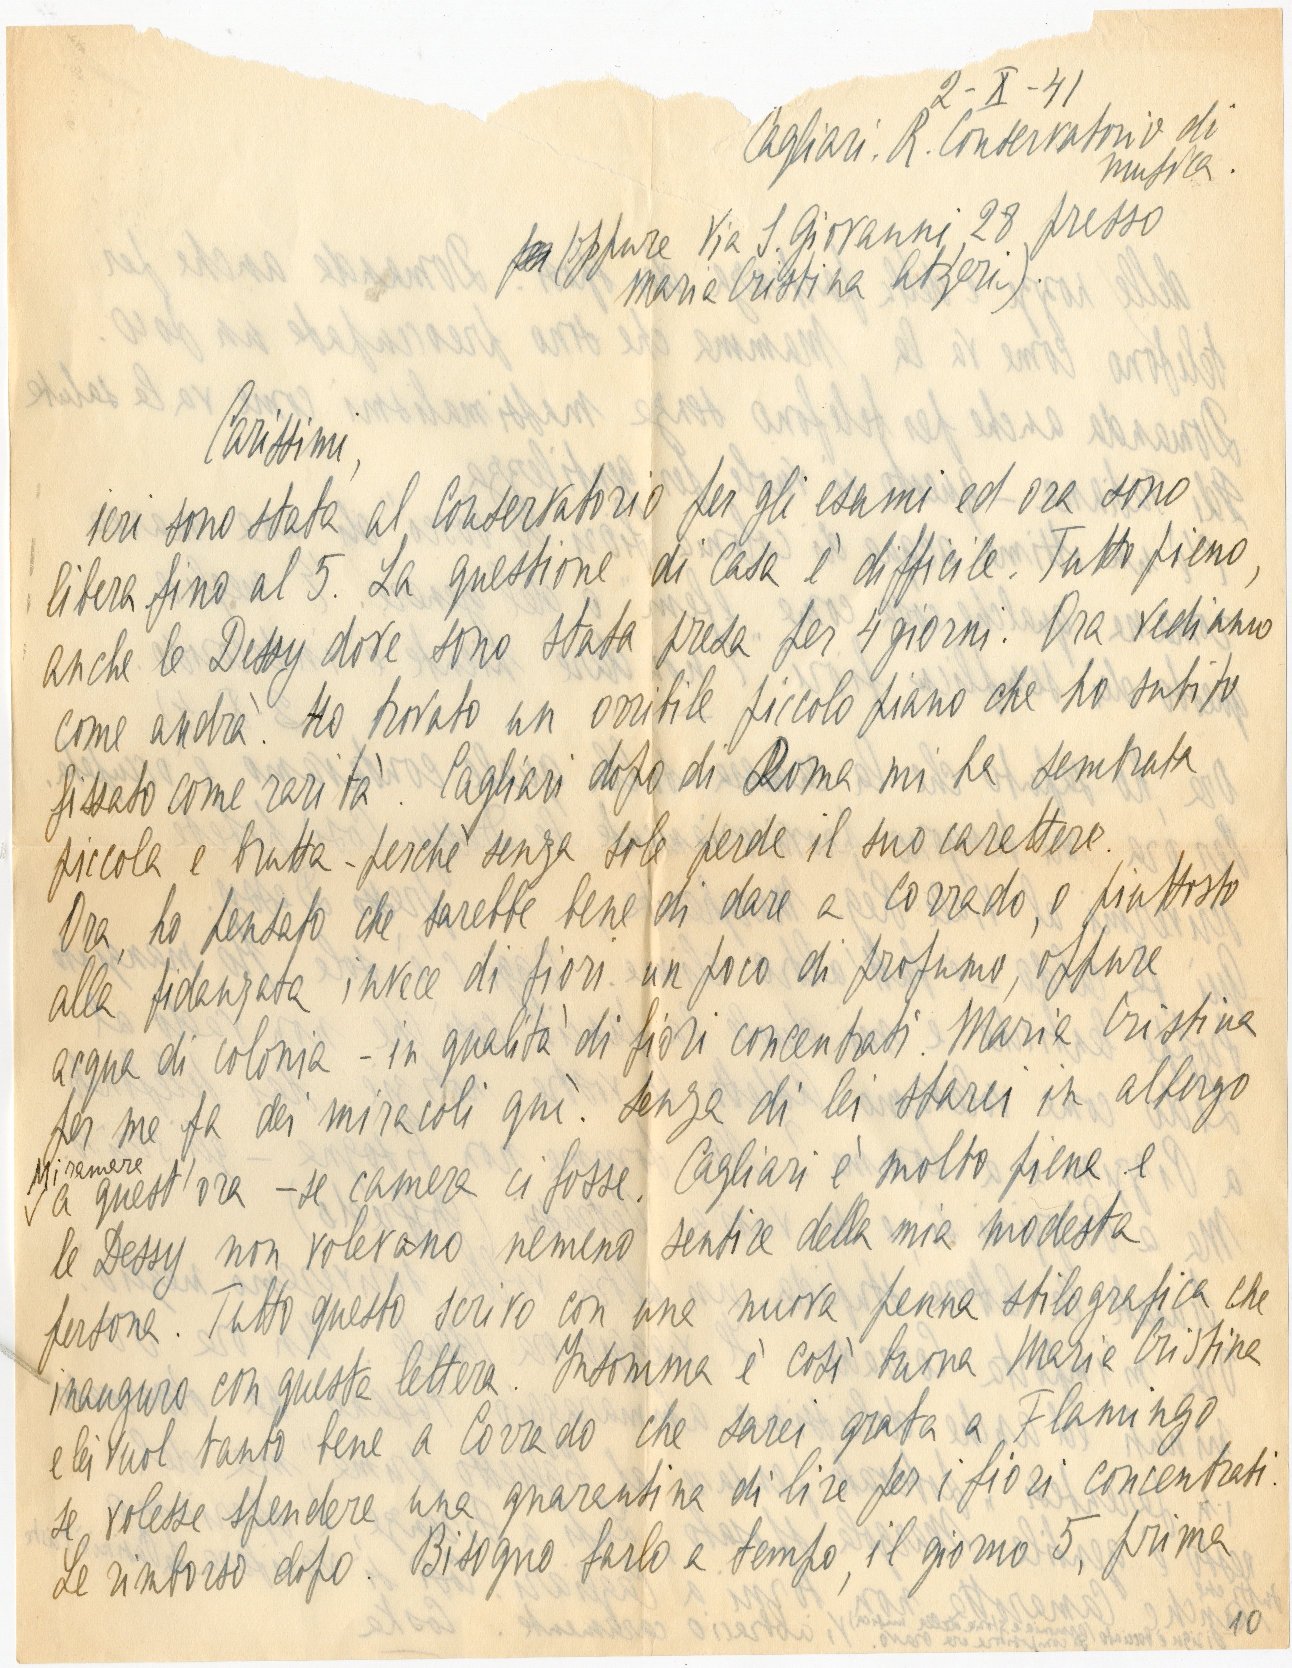 2-X-41
Cagliari. R. Conservatorio di
musica.
(oppure Via S. Giovanni 28 presso
Maria Cristina Atzeri).
Carissimi,
ieri sono stata al Conservatorio per gli esami ed ora sono
libera fino al 5. La questione di casa è difficile. Tutto pieno,
anche le Dessy dove sono stata presa per 4 giorni. Ora vediamo
come andrà. Ho trovato un orribile piccolo piano che ho subito
fissato come rarità. Cagliari dopo di Roma mi ha sembrata
piccola e brutta - perchè senza sole perde il suo carettere.
Ora, ho pensato che sarebbe bene di dare a Corrado, o piuttosto
alla fidanzata invece di fiori un poco di profumo, oppure
acqua di colonia - in qualità di fiori concentrati. Maria Cristina
per me fa dei miracoli quì. Senza di lei starei in albergo
Miramare
a quest'ora - se camera ci fosse. Cagliari è molto piena e
le Dessy non volevano nemeno sentire della mia modesta
persona. Tutto questo scrivo con una nuova penna stilografica che
inauguro con questa lettera. Insomma è così buona Maria Cristina
e lei vuol tanto bene a Corrado che sarei grata a Flamingo
se volesse spendere una quarantina di lire per i fiori concentrati.
Le rimborso dopo. Bisogno farlo a tempo, il giorno 5, prima
10